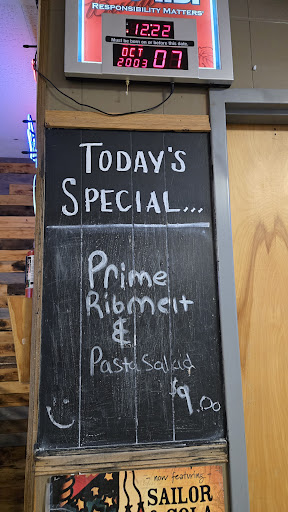 RESPONSIBILITY MATTERS®
12:22
Must be born on or before this date.
OCT 07
2003
TODAY'S
SPECIAL...
Prime
Ribmelt
&
Pasta Salad
$9.00
- now featuring -
SAILOR
& COLA